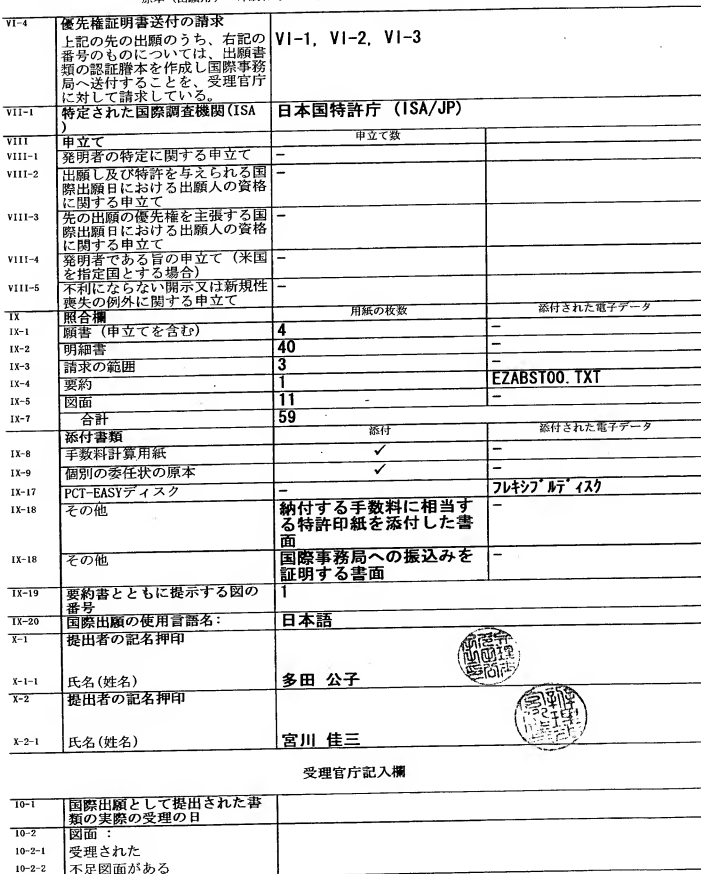 VI-4 優先権証明書送付の請求
上記の先の出願のうち、右記の VI-1, VI-2, VI-3
番号のものについては、出願書
類の認証謄本を作成し国際事務
局へ送付することを、受理官庁
に対して請求している。
VII-1 特定された国際調査機関(ISA 日本国特許庁 (ISA/JP)
)
VIII 申立て 申立て数
VIII-1 発明者の特定に関する申立て -
VIII-2 出願し及び特許を与えられる国 -
際出願日における出願人の資格
に関する申立て
VIII-3 先の出願の優先権を主張する国 -
際出願日における出願人の資格
に関する申立て
VIII-4 発明者である旨の申立て（米国 -
を指定国とする場合）
VIII-5 不利にならない開示又は新規性 -
喪失の例外に関する申立て
IX 照合欄 用紙の枚数 添付された電子データ
IX-1 願書（申立てを含む） 4 -
IX-2 明細書 40 -
IX-3 請求の範囲 3 -
IX-4 要約 1 EZABST00.TXT
IX-5 図面 11 -
IX-7 合計 59
添付書類 添付 添付された電子データ
IX-8 手数料計算用紙 ✓ -
IX-9 個別の委任状の原本 ✓ -
IX-17 PCT-EASYディスク - フレキシブルディスク
IX-18 その他 納付する手数料に相当す -
る特許印紙を添付した書
面
IX-18 その他 国際事務局への振込みを -
証明する書面
IX-19 要約書とともに提示する図の 1
番号
IX-20 国際出願の使用言語名： 日本語
X-1 提出者の記名押印
X-1-1 氏名(姓名) 多田 公子
X-2 提出者の記名押印
X-2-1 氏名(姓名) 宮川 佳三
受理官庁記入欄
10-1 国際出願として提出された書
類の実際の受理の日
10-2 図面：
10-2-1 受理された
10-2-2 不足図面がある